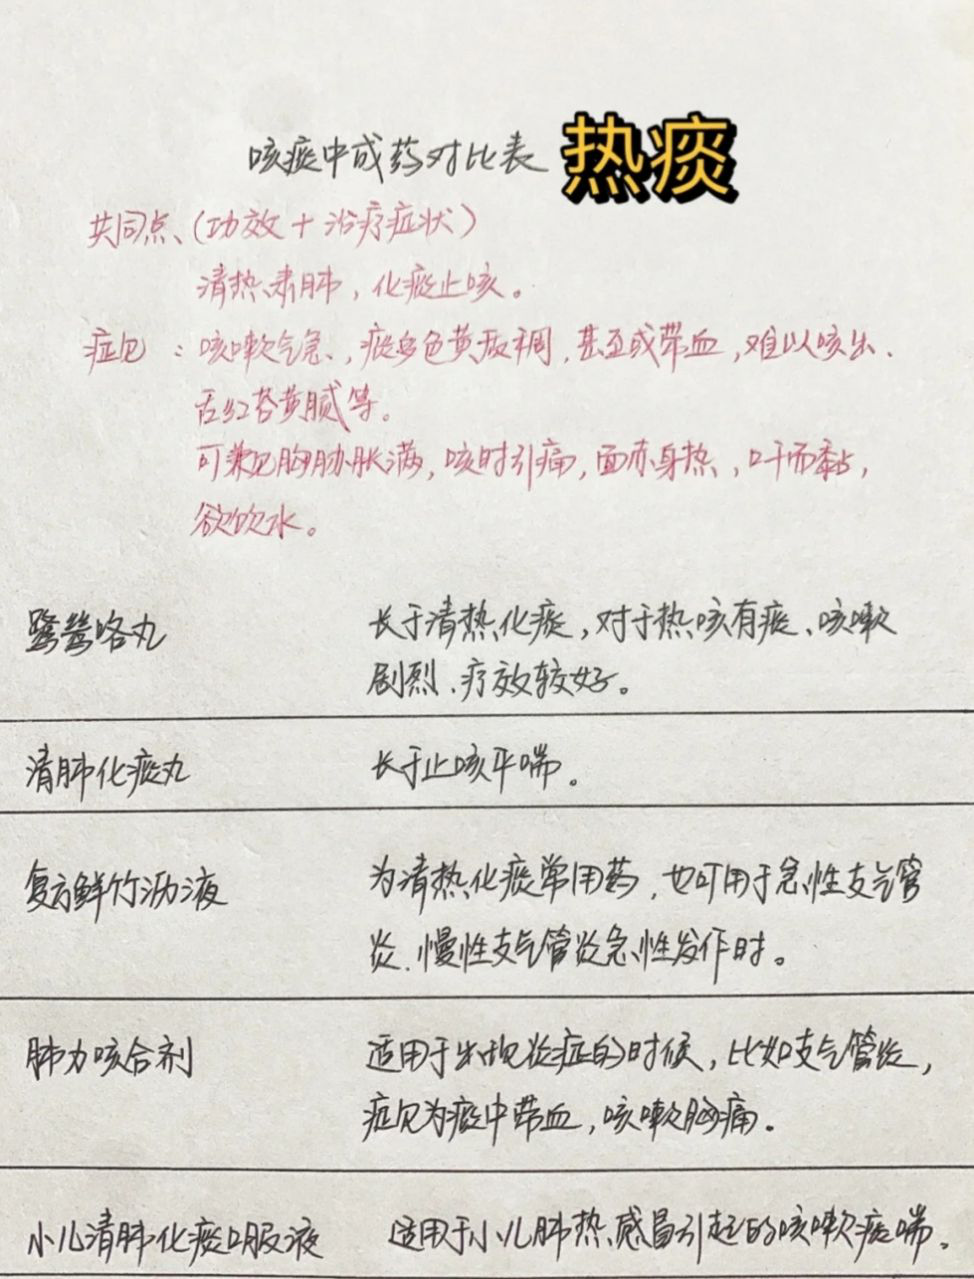 咳痰中成药对比表 热痰
共同点、(功效+治疗症状)
清热肃肺，化痰止咳。
症见：咳嗽气急、，痰多色黄或稠，甚至或带血，难以咳出、
舌红苔黄腻等。
可兼见胸胁胀满，咳时引痛，面赤身热，口干而黏，
欲饮水。
鹭鸶咯丸
长于清热化痰，对于热咳有痰、咳嗽
剧烈、疗效较好。
清肺化痰丸
长于止咳平喘。
复方鲜竹沥液
为清热化痰常用药，也可用于急性支气管
炎、慢性支气管炎急性发作时。
肺力咳合剂
适用于出现炎症的时候，比如支气管炎，
症见为痰中带血，咳嗽胸痛。
小儿清肺化痰口服液
适用于小儿肺热感冒引起的咳嗽痰喘。